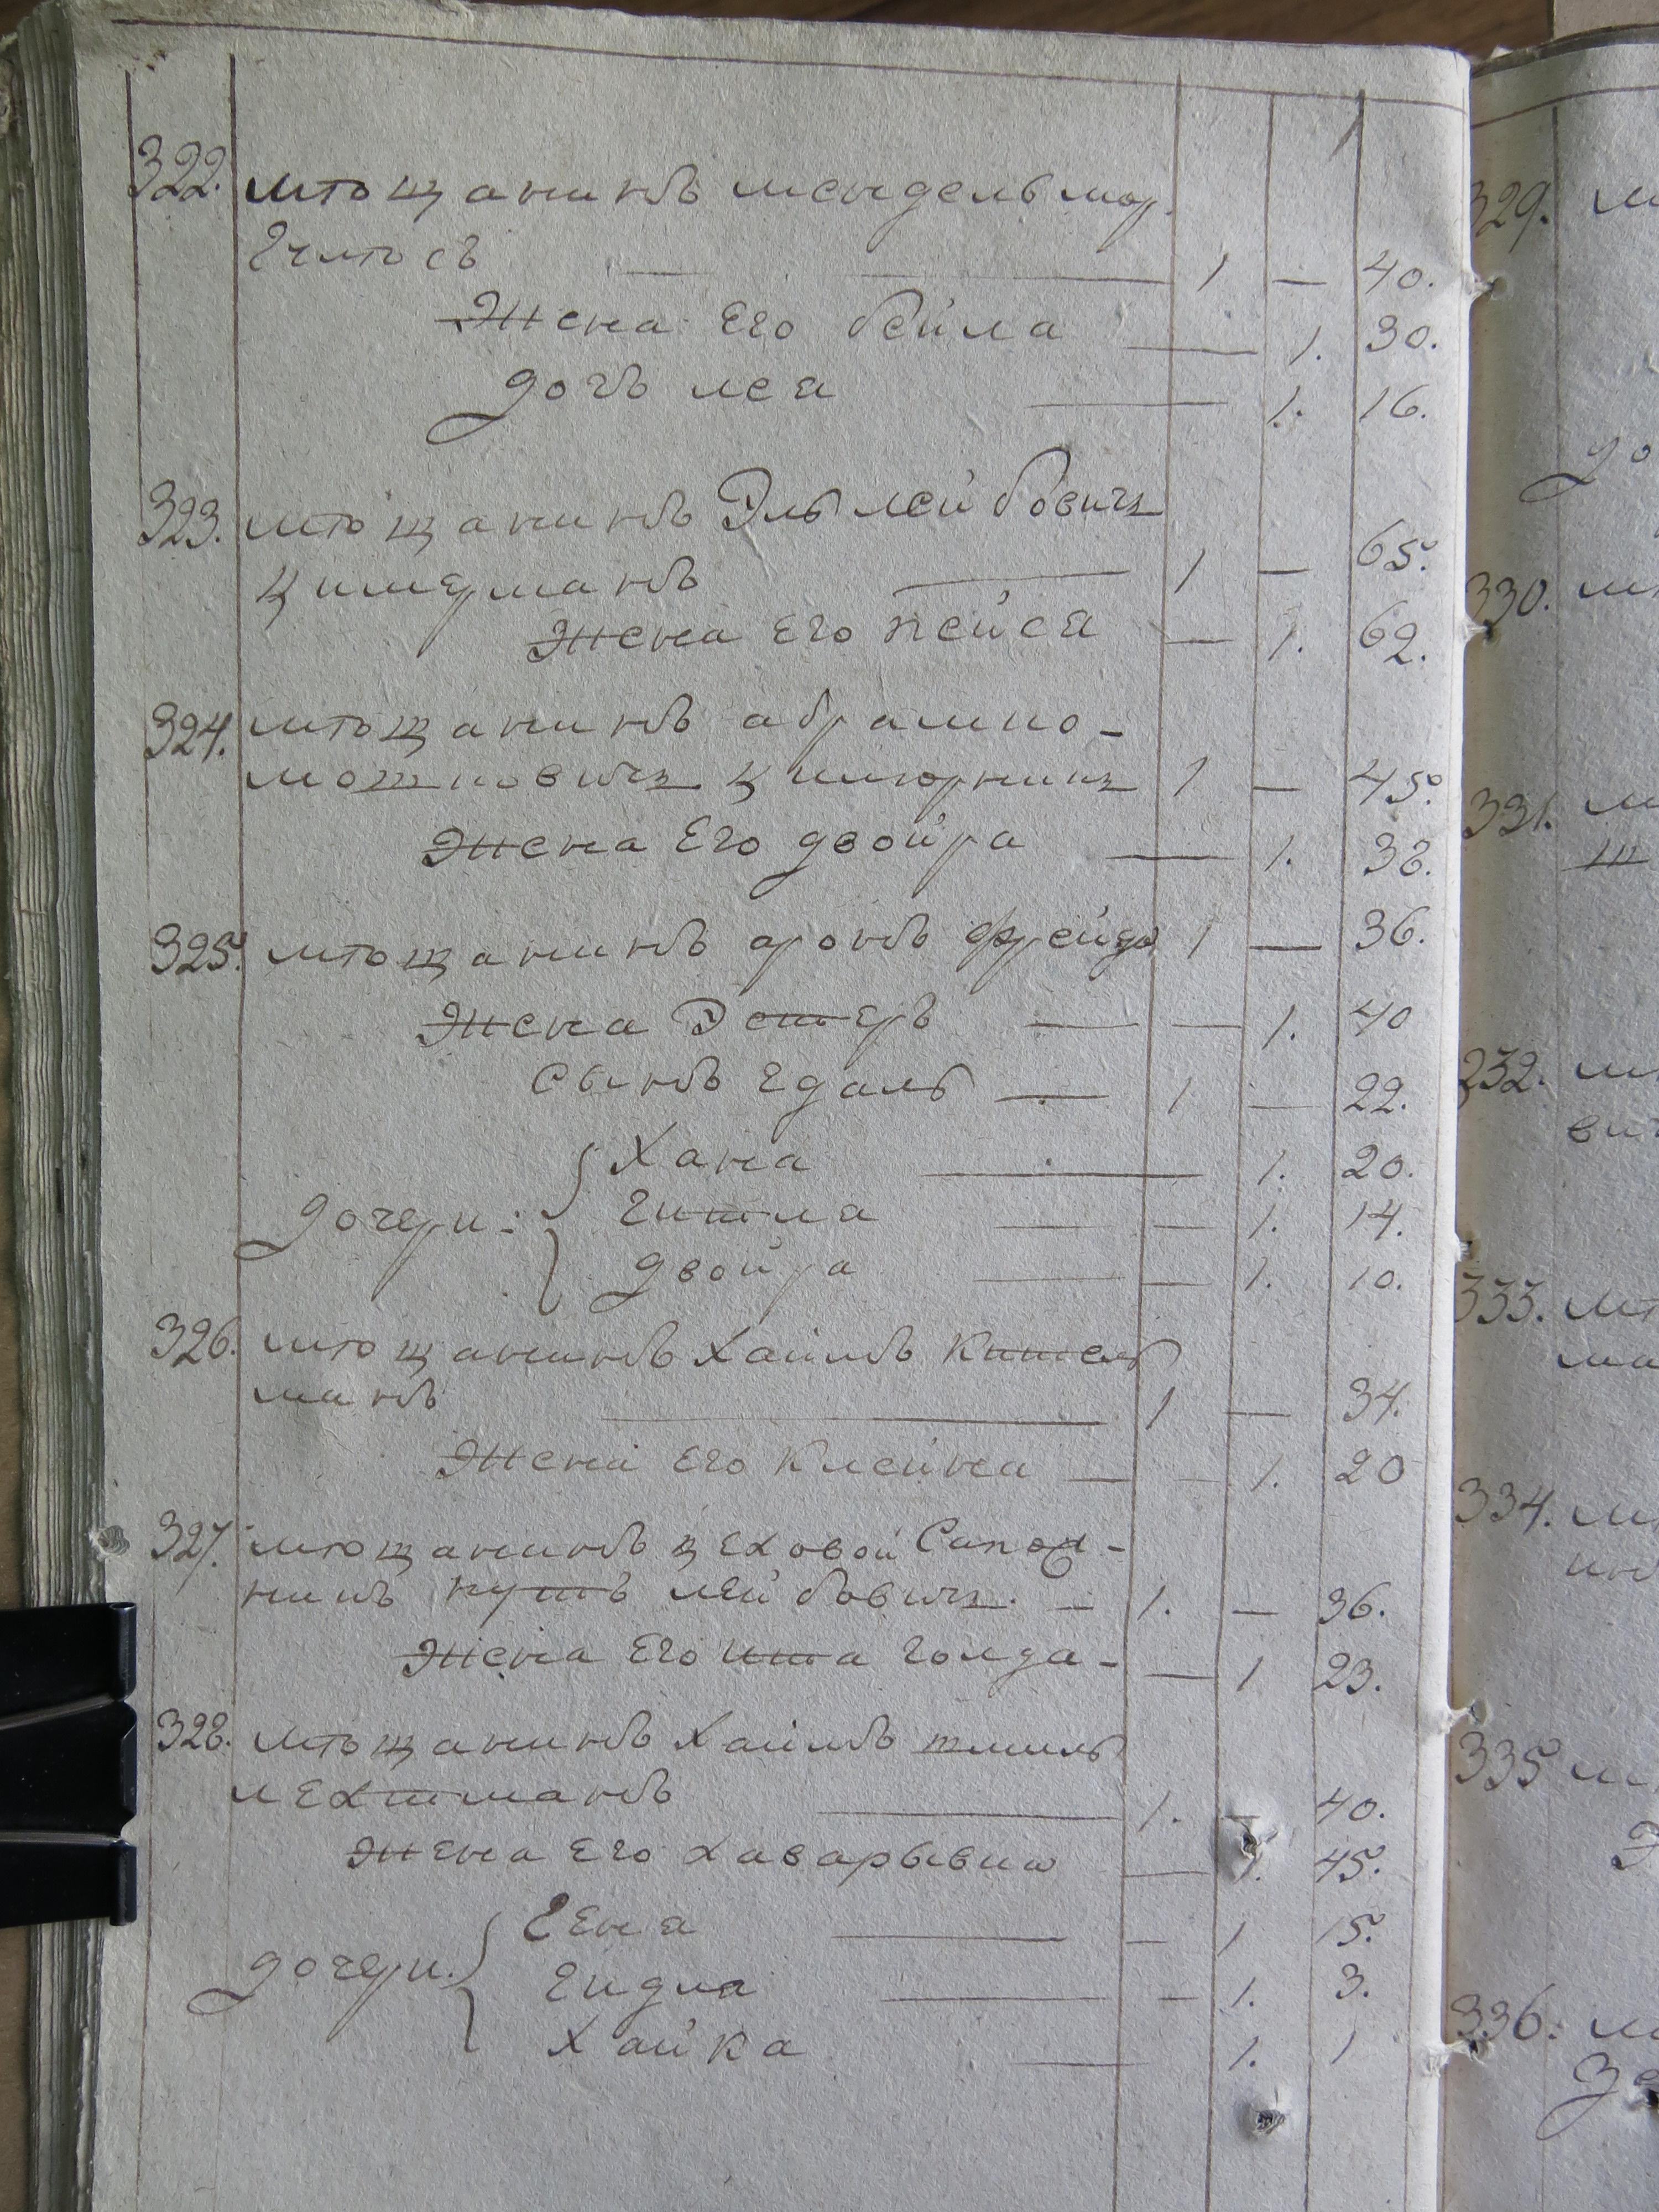 322. мѣщанинъ мендель мор.
гчитсъ — 1 — 40.
Жена Его бейла — 1. 30.
дочь леа — 1. 16.
323. мѣщанинъ Эль лейбовичъ
Цимерманъ — 1 — 65.
Жена Его пейса — 1. 62.
324. мѣщанинъ абрам ио-
мотиовичъ — 1 — 45.
Жена Его двойра — 1. 38.
325. мѣщанинъ аронъ фрейда 1 — 36.
Жена Эстеръ — 1. 40
Сынъ гдаль — 1 — 22.
Хана — 1. 20.
дочери: Гитла — 1. 14.
двойра — 1. 10.
326. мѣщанинъ Хаимъ Кительманъ — 1 — 34.
Жена Его Клейна — 1. 20
327. мѣщанинъ цеховой Сапож-
никъ лейбовичъ. — 1. — 36.
Жена Его ита голда — 1 23.
328. мѣщанинъ Хаимъ шмиль
лехтманъ — 1. — 40.
Жена Его хава рывка — 1. 45.
Гена — 1 15.
дочери. Гидла — 1. 3.
Хайка — 1. 1
329. м
до
330. м
331. м
332. м
вич
333. мѣ
ма
334. м
335 м
Э
336. м